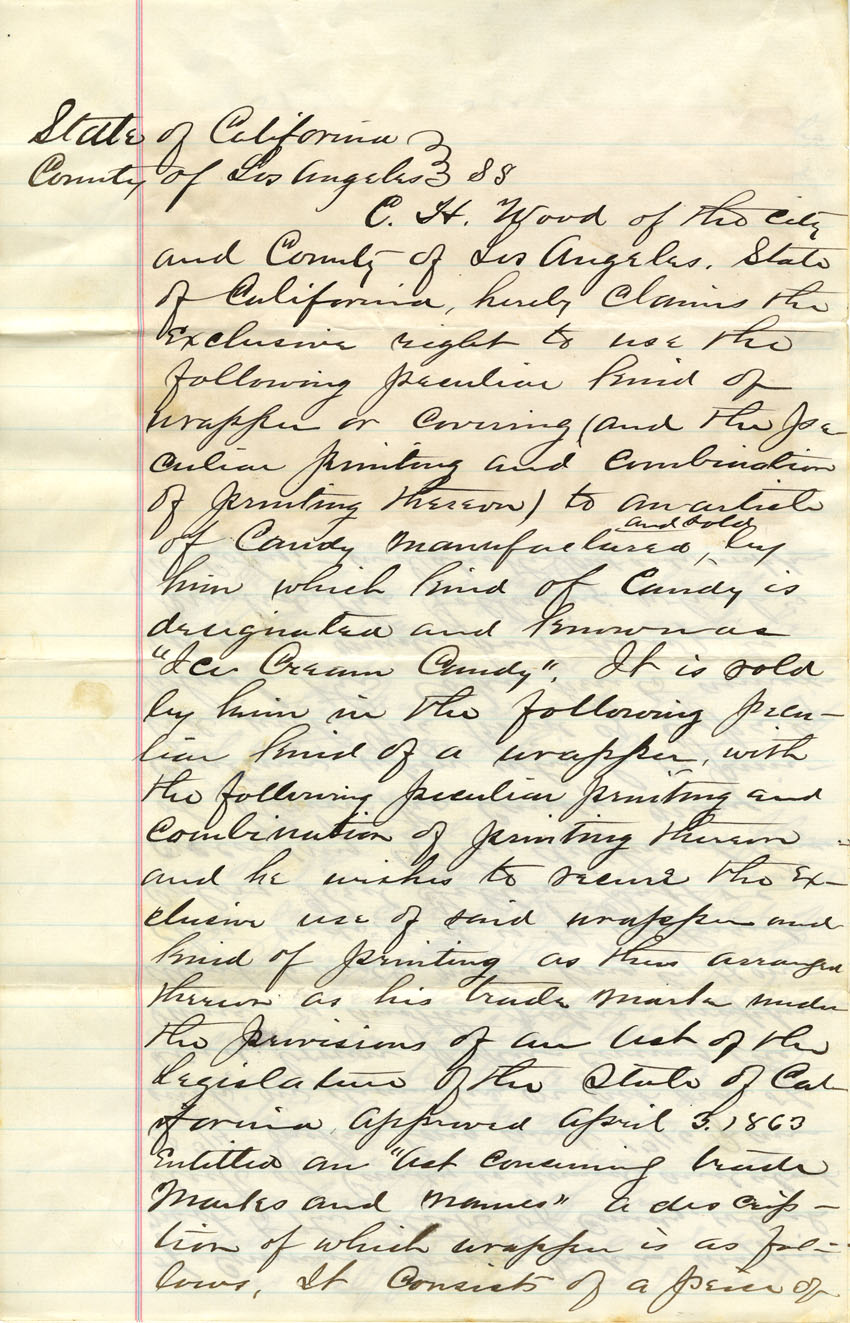 State of California }
County of Los Angeles } SS
C. H. Wood of the City
and County of Los Angeles, State
of California, hereby claims the
Exclusive right to use the
following peculiar kind of
wrapper or covering (and the pe-
culiar printing and combination
of printing thereon) to an article
of Candy manufactured, and sold by
him which kind of Candy is
designated and known as
"Ice Cream Candy". It is sold
by him in the following pecu-
liar kind of a wrapper, with
the following peculiar printing and
combination of printing thereon -
and he wishes to secure the Ex-
clusive use of said wrapper and
kind of printing as thus arranged
thereon as his trade mark under
the provisions of an Act of the
Legislature of the State of Cal-
ifornia, approved April 3. 1863
Entitled an "Act concerning trade
Marks and names" a descrip-
tion of which wrapper is as fol-
lows, It consists of a peice of